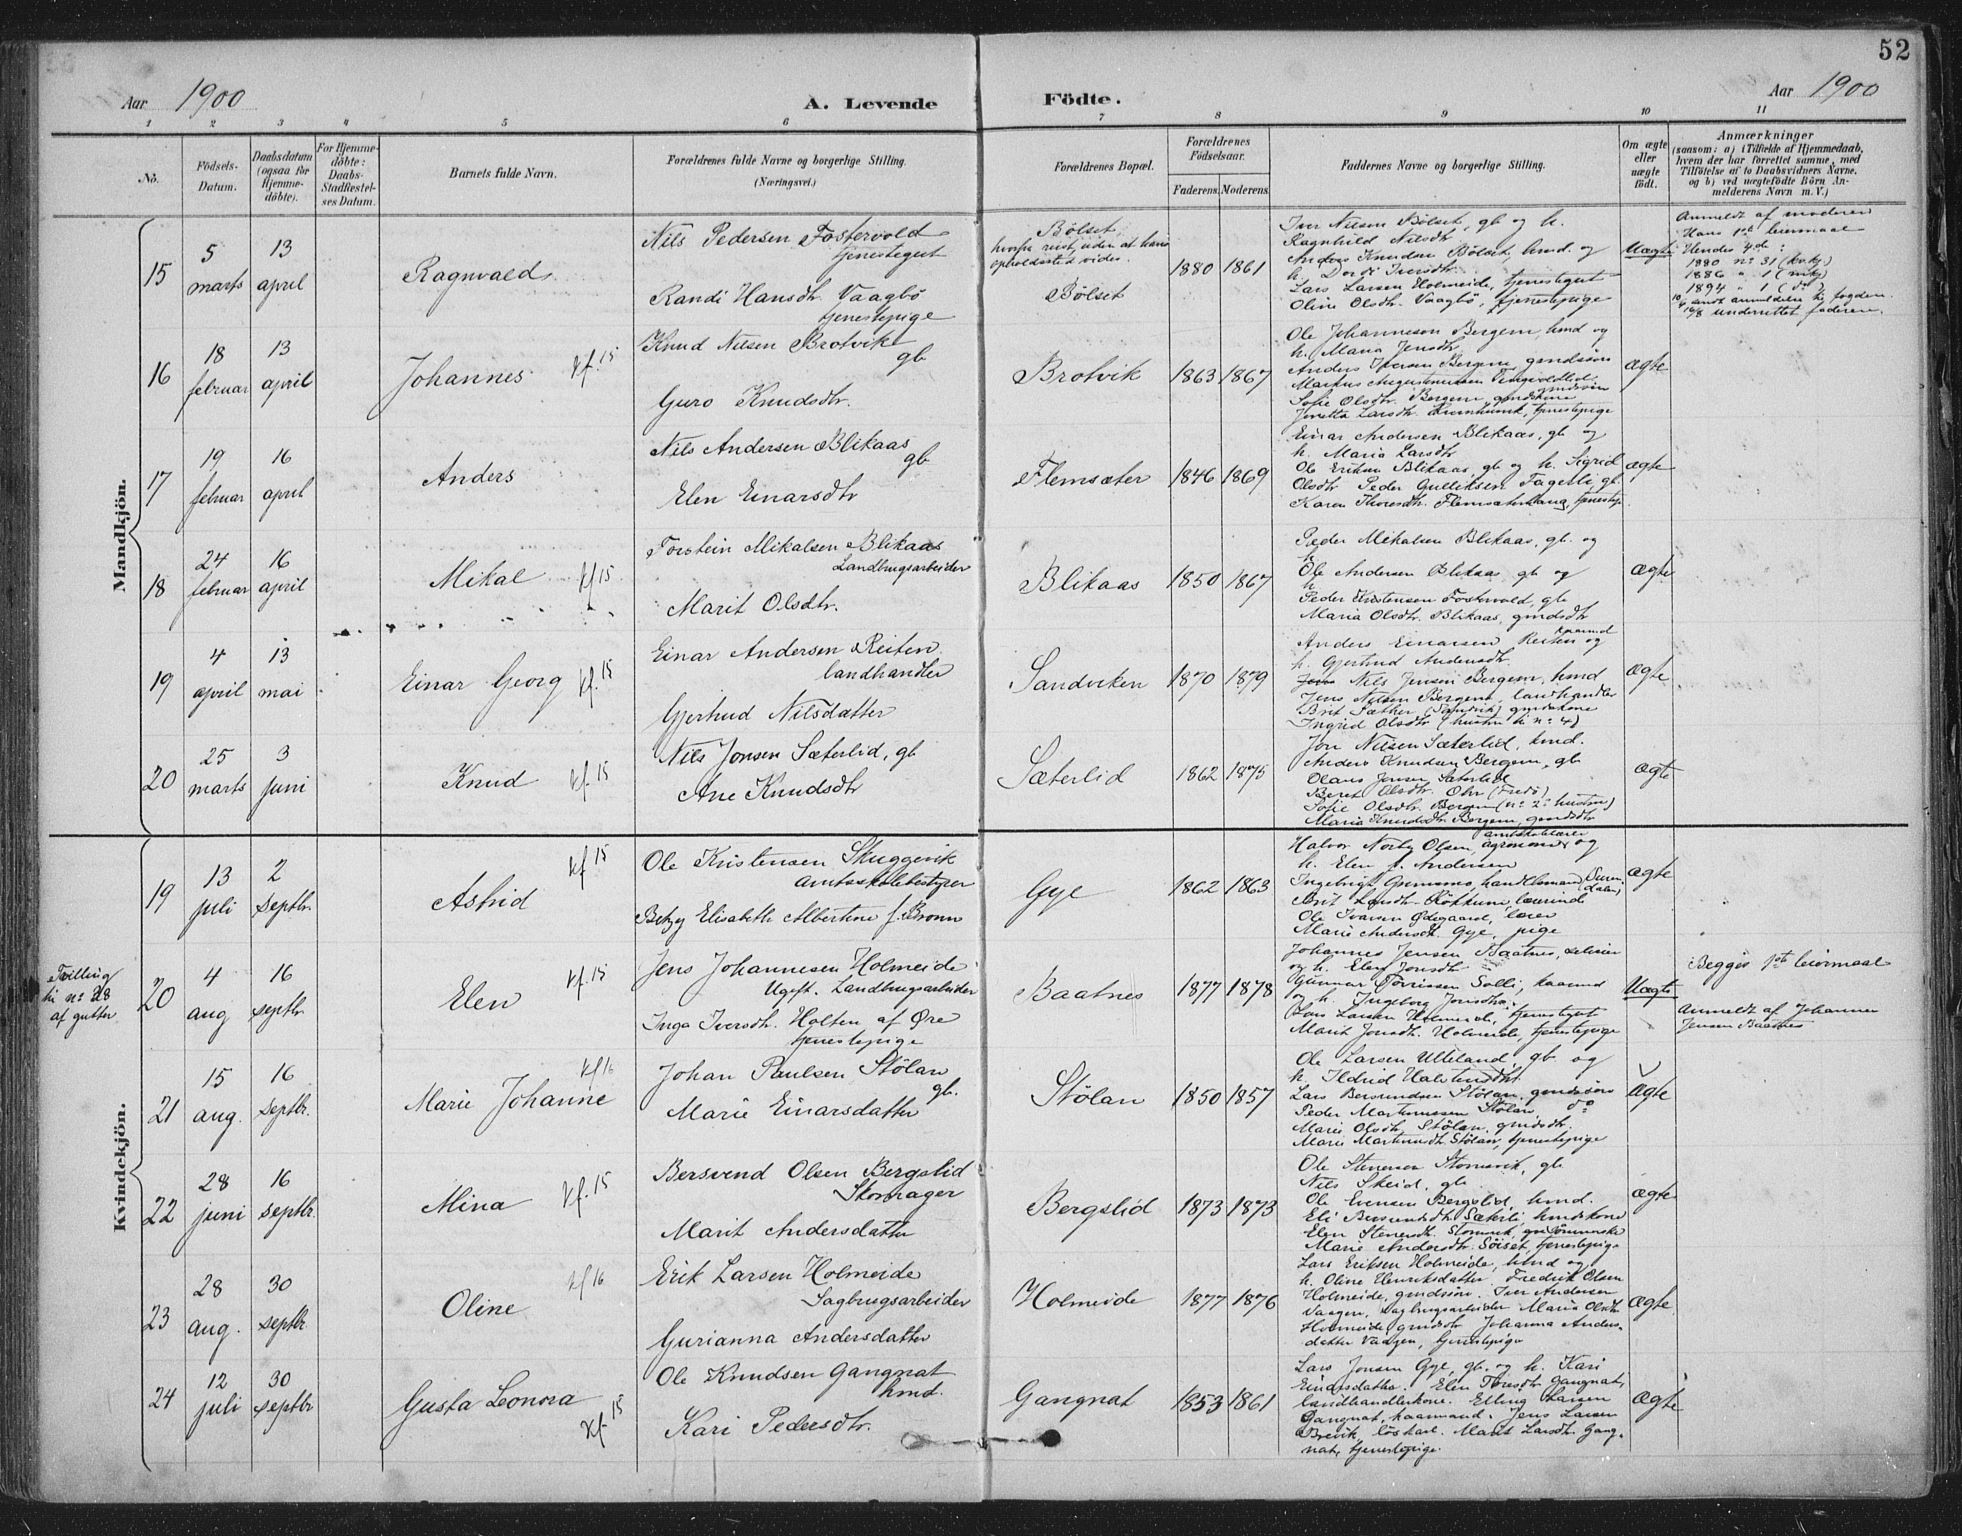 52
Aar 1900
A. Levende
Födte.
Aar 1900
1 2 3 4 5 6 7 8 9 10 11
No.
Födsels-
Datum.
Daabsdatum
(ogsaa for
Hjemme-
döbte).
For Hjemme-
döbte:
Daabs-
Stadfæstel-
ses Datum.
Barnets fulde Navn.
Forældrenes fulde Navne og borgerlige Stilling.
(Næringsvei.)
Forældrenes Bopæl.
Forældrenes
Födselsaar.
Faderens. Moderens.
Faddernes Navne og borgerlige Stilling.
Om ægte
eller
uægte
födt.
Anmærkninger
(saasom: a) i Tilfælde af Hjemmedaab,
hvem der har forrettet samme, med
Tilföielse af to Daabsvidners Navne,
og b) ved uægtefödte Börn An-
melderens Navn m. V.)
Mandkjön.
15
5
marts
13
april
Ragnvald
Nils Pedersen Fostervold
tjenestegut
Randi Hansdtr. Vaagbö
tjenestepige
Bölset,
hvorfra reist, uden at hans
opholdssted vides.
Bölset
1880 1861
Iver Nilsen Bölset, gb og h.
Ragnhild Nilsdtr
Anders Knudsen Bölset, kmd. og
h. Dordi Iversdtr.
Lars Larsen Holmeide, tjenestegut
Oline Olsdtr. Vaagbö, tjenestepige
Uægte
Anmeldt af moderen
Hans 1ste leiermaal
Hendes 4de:
1880 no 31 (kvkj)
1886 " 1 (mkj)
1894 " 1 (do)
sendt anmeldelse til fogden.
underrettet faderen.
16
18
februar
13
april
Johannes
kf. 15
Knud Nilsen Brotvik
gb
Guro Knudsdtr.
Brotvik
1863 1867
Ole Johannesen Bergem, kmd og
h. Maria Jensdtr.
Anders Iversen Bergem, gmdssön
Markus Augustinussen Tingvoldlid.
gmdssön
Sofie Olsdtr. Bergem, gmdskone
Jonetta Larsdtr. tjenestepige
ægte
17
19
februar
16
april
Anders
Nils Andersen Blikaas
gb
Elen Einarsdtr
Flemsæter
1846 1869
Einar Andersen Blikaas, gb og
h. Maria Larsdtr
Ole Eriksen Blikaas, gb og h. Sigrid
Olsdtr Peder Gulliksen Fagerli, gb
Karen Thoresdtr. Flemsæterhaug, tjenestep.
ægte
18
24
februar
16
april
Mikal
kf 15.
Torstein Mikalsen Blikaas
Landbrugsarbeider
Marit Olsdtr.
Blikaas
1850 1867
Peder Mikalsen Blikaas, gb. og
h.
Ole Andersen Blikaas gb og
h.
Peder Kristensen Fostervold, gb
Maria Olsdtr. Blikaas, gmdsdtr
ægte
19
4
april
13
mai
Einar Georg
kf. 15
Einar Andersen Reiten.
landhandler
Gjertrud Nilsdatter
Sandviken
1870 1879
Anders Einarsen Reiten og
kaarmd
h. Gjertrud Andersdtr.
Jens Nils Jensen Bergem, kmd
Jens Nilsen Bergem, landhandler
Brit Sæther (Sandvik) gmdskone
Ingrid Olsdtr (hustru til no 4)
ægte
20
25
marts
3
juni
Knud
kf. 15
Nils Jonsen Sæterlid, gb
Ane Knudsdtr
Sæterlid
1862 1875
Jon Nilsen Sæterlid, kmd.
Anders Knudsen Bergem, gb
Olaus Jensen Sæterlid
Beret Olsdtr. (Fredö)
Sofie Olsdtr. Bergem (no 2s hustru)
Maria Knudsdtr. Bergem, gmdsdtr
ægte
Kvindekjön.
19
13
juli
2
septbr.
Astrid
kf 15
Ole Kristensen Skuggevik
amtsskolebestyrer
Betzy Elisabeth Albertine f. Bronn
Gye
1862 1863
Halvor Norby Olsen, agronom og
amtskolelærer
h. Elen f. Andersen
Ingebrigt Grimsmo, handelsmand (Suren
dalen)
Brit Larsdtr. Rökkum, lærerinde
Ole Ivarsen Ødegaard, lærer
Marie Andersdtr. Gye, pige
ægte
Tvilling
til no 28
af gutter
20
4
aug
16
septbr.
Elen
kf. 15
Jens Johannesen Holmeide
Ugift. Landbrugsarbeider
Inga Iversdtr. Holten af Øre
tjenestepige
Baatnes
1877 1878
Johannes Jensen Baatnes, selveier
og h. Elen Jonsdtr
Gunnar Torrissen Solli, kaarmd
og h. Ingeborg Jonsdtr.
Lars Larsen Holmeide, tjenestegut
Marit Jonsdtr. Holmeide, tjenestepige
Uægte
Begges 1ste leiermaal
Anmeldt af Johannes
Jensen Baatnes
21
15
aug.
16
septbr.
Marie Johanne
kf 16
Johan Paulsen Stölan
gb.
Marie Einarsdatter
Stölan
1850 1857
Ole Larsen Ulleland, gb og
h. Ildrid Halstensdtr.
Lars Bersvendsen Stölan, gmdssön
Peder Martinussen Stölan, do
Marie Olsdtr. Stölan, gmdsdtr.
Marie Martinusdtr. Stölan, tjenestepige
Ægte
22
28
juni
16
septbr.
Mina
kf. 15
Bersvend Olsen Bergslid
Skomager
Marit Andersdatter
Bergslid
1873 1873
Ole Stenersen Stomsvik, gb.
Nils Skeid, gb.
Ole Evensen Bergslid, kmd.
Eli Bersvendsdtr. Sæterli, kmdskone
Elen Stenersdtr. Stomsvik,
Marie Andersdtr. Söiset, tjenestepige
ægte
23
28
aug.
30
septbr.
Oline
kf 16
Erik Larsen Holmeide
Sagbrugsarbeider
Gurianna Andersdatter
Holmeide
1877 1876
Lars Eriksen Holmeide, kmd og
h. Oline Henriksdatter Fredrik Olsen
Holmeide, gmdssön. Iver Andersen
Vaagen, Sagbrugsarbeider Maria Olsdtr
Holmeide, gmdsdtr Johanna Anders-
datter Vaagen, tjenestepige
ægte
24
12
juli
30
septbr
Gusta Leonora
kf. 15
Ole Knudsen Gangnat
kmd.
Kari Pedersdtr.
Gangnat
1853 1861
Lars Jonsen Gye, gb. og h. Kari
Einarsdatter. Elen Toresdtr Gangnat,
landhandlerkone. Elling Larsen
Gangnat, kaarmand. Jens Larsen
Brevik löskarl. Marit Larsdtr. Gang-
nat, tjenestepige.
ægte